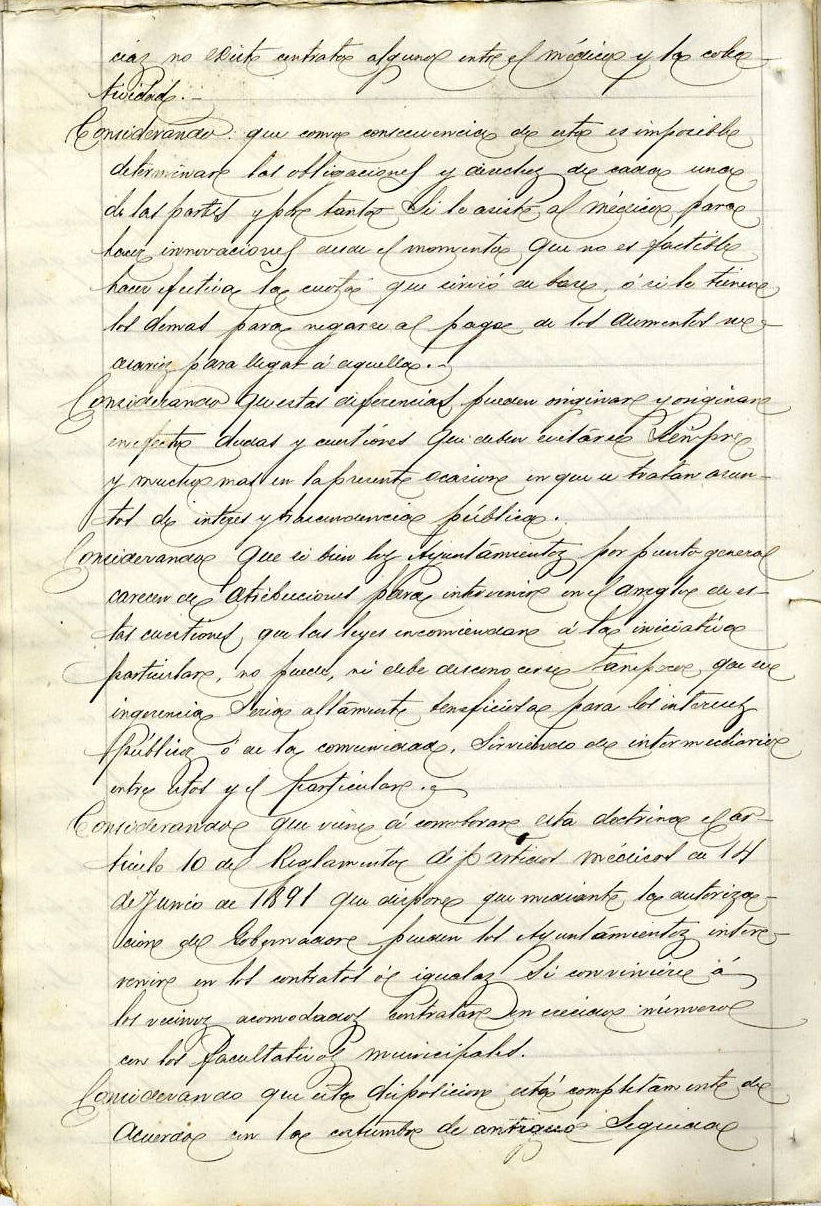 cias no existe contrato alguno entre el médico y la colec-
tividad.-
Considerando: que como consecuencia de esto es imposible
determinar las obligaciones y derechos de cada una
de las partes y por tanto Si le asiste al médico para
hacer innovaciones desde el momento que no es factible
hacer efectiva la cuota que sirvió de base, ó si le tienen
los demas para negarse al pago de los aumentos nece-
sarios para llegar á aquella.-
Considerando que estas diferencias pueden originar y originan
en efecto dudas y cuestiones que deben evitarse siempre
y mucho mas en la presente ocasion en que se tratan asun-
tos de interes y trascendencia pública.
Considerando que si bien los Ayuntamientos por punto general
carecen de atribuciones para intervenir en el arreglo de es-
tas cuestiones que las leyes encomiendan á la iniciativa
particular, no puede, ni debe desconocerse tampoco que su
ingerencia seria altamente beneficiosa para los intereses
públicos ó de la comunidad, Sirviendo de intermediario
entre estos y el particular.-
Considerando que viene á corroborar esta doctrina el ar-
ticulo 10 del Reglamento de partidos médicos de 14
de Junio de 1891 que dispone que mediante la autoriza-
cion del Gobernador pueden los Ayuntamientos inter-
venir en los contratos de igualas Si conviniere á
los vecinos acomodados contratar en crecido número
con los facultativos municipales.
Considerando que esta disposicion está completamente de
acuerdo con la costumbre de antiguo Seguida